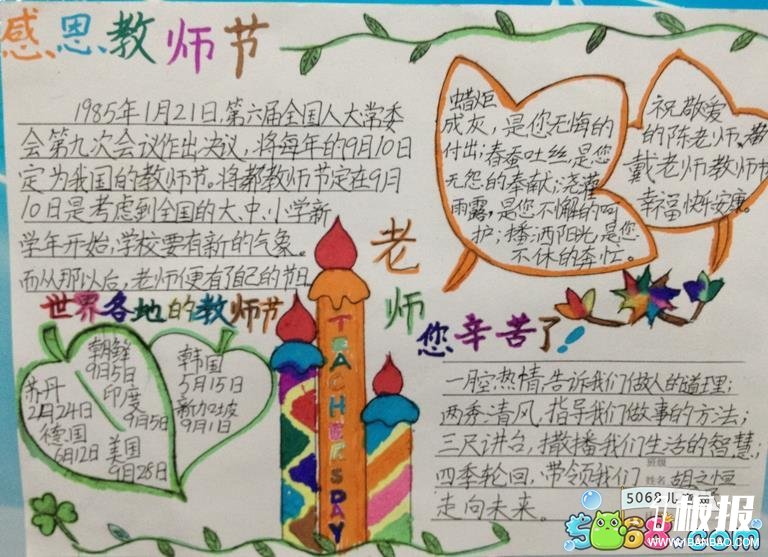 感恩教师节
1985年1月21日,第六届全国人大常委
会第九次会议作出决议,将每年的9月10日
定为我国的教师节。将都教师节定在9月
10日是考虑到全国的大、中、小学新
学年开始,学校要有新的气象。
而从那以后,老师便有了自己的节日
蜡炬
成灰,是您无悔的
付出;春蚕吐丝,是您
无怨的奉献;浇灌
雨露,是您不懈的呵
护;播洒阳光,是您
不休的奔忙。
祝敬爱
的陈老师、
戴老师教师节
幸福快乐安康。
老师
您辛苦了!
世界各地的教师节
朝鲜
9月5日
印度
9月5日
苏丹
2月24日
德国
6月12日
美国
9月28日
韩国
5月15日
新加坡
9月1日
TEACHERSDAY
一腔热情,告诉我们做人的道理;
两秀清风,指导我们做事的方法;
三尺讲台,撒播我们生活的智慧;
四季轮回,带领我们
走向未来。
班级
姓名 胡之恒
5068儿童网
板报
WWW.BANBAO.COM
5068.com